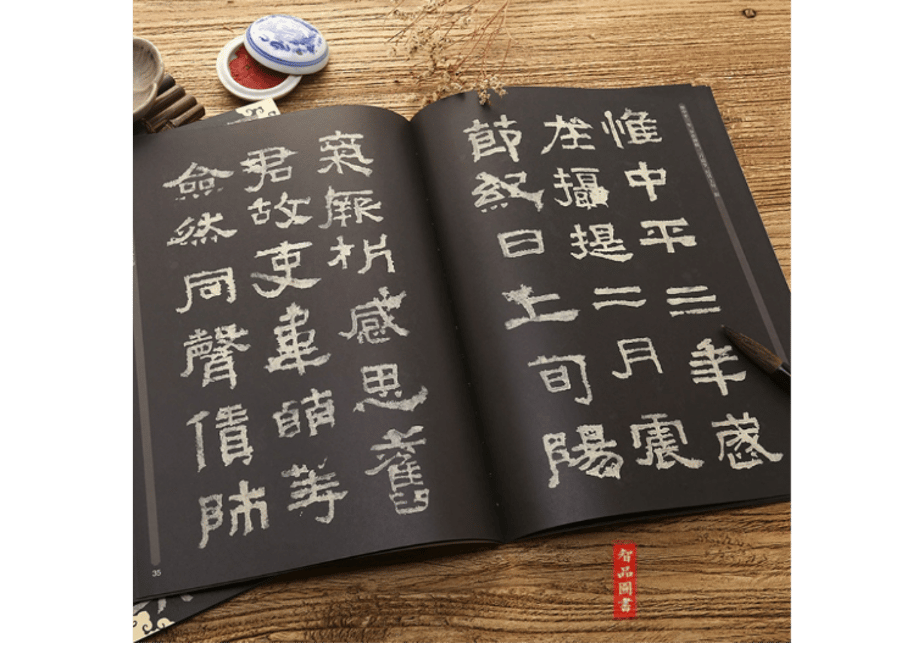 惟中平三年歲
在攝提二月震
節紀日上旬陽
氣厥析感思舊
君故吏韋萌等
僉然同聲賃師
35
智品圖書